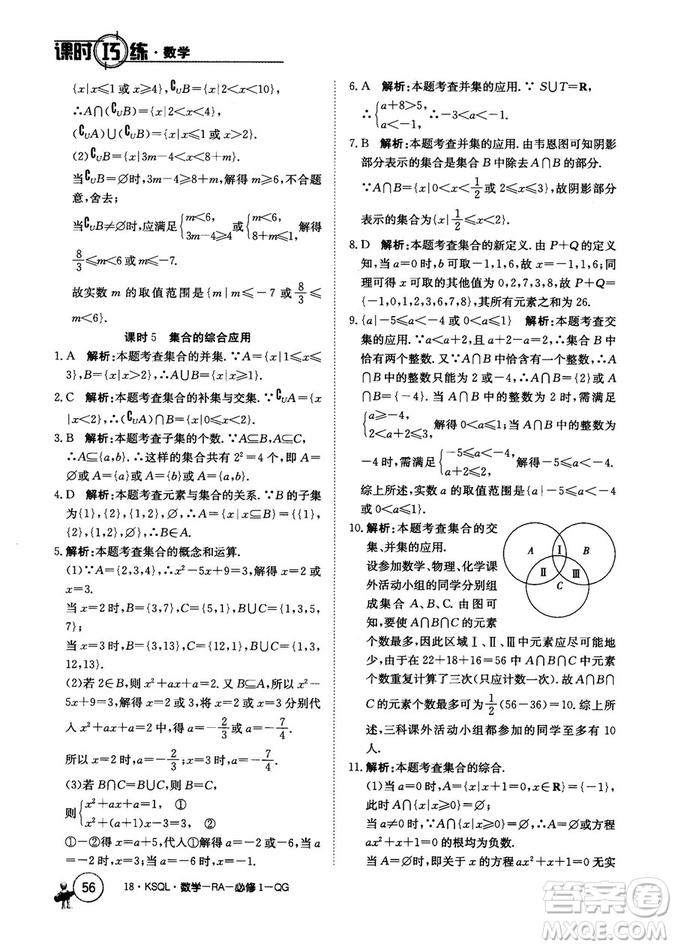 课时巧练·数学
{x|x≤1 或 x≥4}, ∁UB={x|x<2 或 x<10},
∴A∩(∁UB)={x|2<x<4},
(∁UA)∪(∁UB)={x|x≤1 或 x>2}.
(2)∁UB={x|3m-4<x<8+m}.
当∁UB=∅时,3m-4≥8+m,得 m≥6,不合题
意,舍去;
当∁UB≠∅时,应满足{m<6, 3m-4≥4 或 {m<6, 8+m≤1, 解得
8/3≤m<6 或 m≤-7.
故实数 m 的取值范围是{m|m≤-7 或 8/3≤
m<6}.
课时 5 集合的综合应用
1. A 解析:本题考查集合的并集.∵A={x|1≤x≤3},
B={x|x>2},∴A∪B={x|x≥1}.
2. C 解析:本题考查集合的补集与交集.∵∁UA={x|
x<2},∴(∁UA)∩B={x|0≤x<2}.
3. B 解析:本题考查子集的个数.∵A⊆B, A⊆C,
∴A⊆{a,b}.∴集合共含有 2²=4 个,∴A 可能
是∅或{a}或{b}或{a,b}.
4. D 解析:本题考查元素与集合的关系.∵B 的子集
为{1},{2},{1,2},∅,∴A={x|x⊆B}={{1},
{2},{1,2},∅},∴B∈A.
5. 解析:本题考查集合的概念和运算.
(1)∵A={2,3,4},∴x²-5x+9=3,解得 x=2 或
x=3.
当 x=2 时,B={3,7},C={5,1},B∪C={1,3,5,
7};
当 x=3 时,B={3,12},C={1,5},B∪C={1,3,5,
12}.
(2)若 2∈B,则 x²+ax+a=2,又 B⫋A,所以 x²
-5x+9=3 得 x=2 或 x=3,将 x=2 或 x=3 分别代
人 x²+ax+a=2 中得 a=-2/3 或 a=-7/4.
所以 x=2 时,a=-2/3;x=3 时,a=-7/4.
(3)若 B∩C={1,3},则 B=C,
则{x²+ax+a=1, ① x²+(a+1)x-3=3, ②
①-②得 x=a+5,代人①解得 a=-2 或 a=-6.
当 a=-2 时,x=3;当 a=-6 时,x=-1.
56 18·KSQL·数学-RA-必修1-QG
6. A 解析:本题考查并集的应用.∵S∪T=R,
∴{a+8>5, a<-1, ∴-3<a<-1.
7. B 解析:本题考查并集的应用.由韦恩图可知阴影
部分表示的集合是集合 B 中除去 A∩B 的部分.
∵A∩B={x|1/2<x<1},B={x|x<1},故阴影部分
表示的集合为{x|x≤1/2}.
8. D 解析:本题考查集合的新定义.由 P+Q 的定义
知,当 a=0 时,b 可取-1,1,6,故 x=-1,1,6;当
a=1 时,x=0,2,7;当 a=2 时,x=1,3,8.∴P+Q=
{-1,0,1,2,3,6,7,8},所有元素之和为 26.
9. {a|-5≤a<-4 或-2<a≤0} 解析:本题考查交集
的应用.∵A∩B 中有且仅有一个整数,∴A∩
B={-4}.当 A∩B 中的整数为 2 时,
{a≥-4, 2≤a+4<3, 解得-2≤a<-1;当 A∩B 中的整数为
-4 时,{-5≤a≤-4, a+4<2, 解得-5≤a≤-4.
综上所述,a 的取值范围是{a|-5≤a≤-4 或-2
≤a<0}.
10. 解析:本题考查集合的交
集、并集的应用.
设参加数学、物理、化学课
外活动小组的同学分别组
成集合 A、B、C.若同学总
个数最多,因此区域Ⅰ、Ⅱ、Ⅲ中元素最多.
由于 22+18+16=56 中 A∩B∩C 的元素个
数重复计算了三次(只应计数一次).故 A∩B
∩C 的元素个数最多为1/2(56-36)=10.综上
所述,三科课外活动小组都参加的同学至多有 10
人.
A
B
C
Ⅰ
Ⅱ
Ⅲ
11. 解析:本题考查集合的综合.
(1)当 a=0 时,A={x|x+1=0,x∈R}={-1},
此时 A∩{x|x≥0}=∅;
当 a≠0 时,∵A∩{x|x≥0}=∅,∴A=∅或方程
ax²+x+1=0 的根均为负数.
当 A=∅时,即关于 x 的方程 ax²+x+1=0 无实
答案圈
MXQE.COM